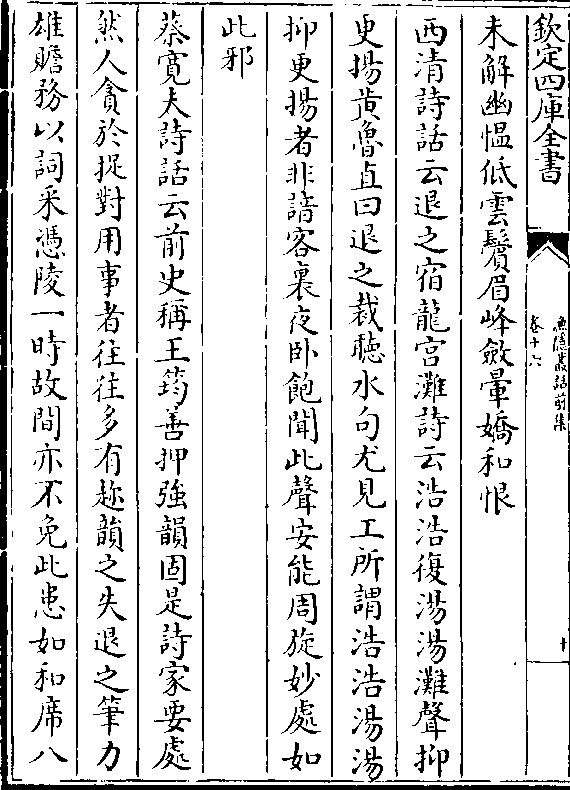 欽定四庫全書
漁隱叢話前集
卷十六
十
未解幽愠低雲鬢眉峰斂暈嬌和恨
西清詩話云退之宿龍宮灘詩云浩浩復湯湯灘聲抑
更揚黄魯直曰退之裁聴水句尤見工所謂浩浩湯湯
抑更揚者非諳客裏夜卧飽聞此聲安能周旋妙處如
此邪
蔡寛夫詩話云前史稱王筠善押強韻固是詩家要處
然人貪於捉對用事者往往多有趂韻之失退之筆力
雄贍務以詞采憑陵一時故間亦不免此患如和席八